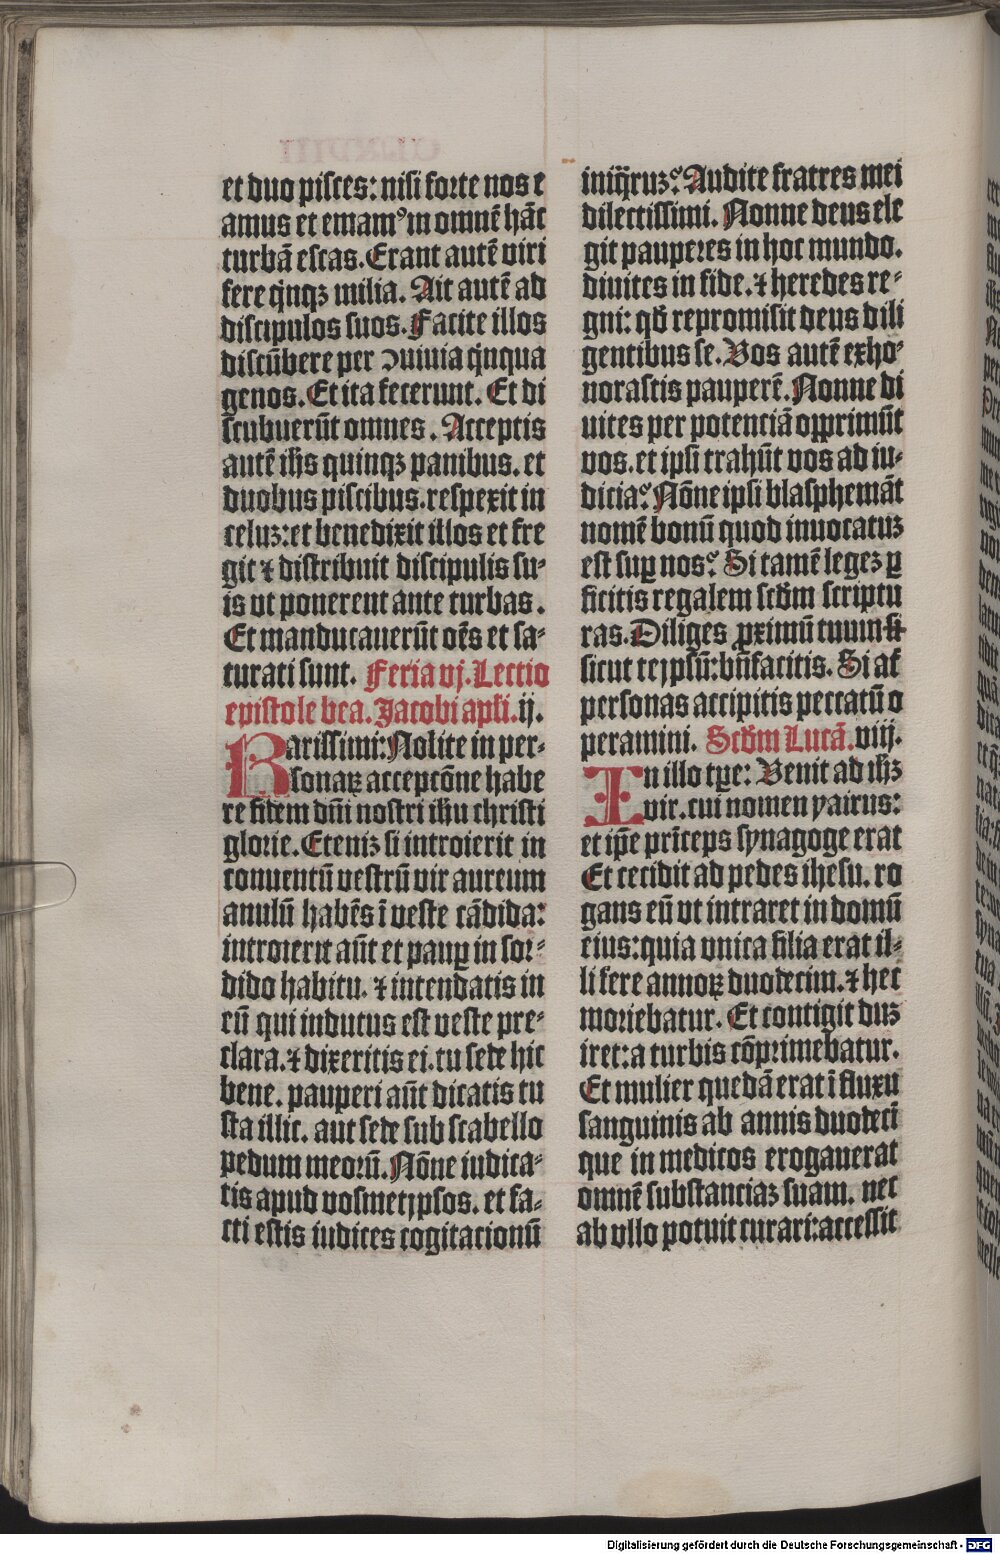 et duo pisces: nisi forte nos e
amus et emamꝰ in omnē hāc
turbā escas. Erant autē viri
fere q̇nqꝫ milia. Ait autē ad
discipulos suos. Facite illos
discūbere per ↄuiuia q̇nqua
genos. Et ita fecerunt. Et di
scubuerūt omnes. Acceptis
autē ihs quinqꝫ panibus. et
duobus piscibus. respexit in
celuꝫ: et benedixit illos et fre
git ⁊ distribuit discipulis su⸗
is vt ponerent ante turbas.
Et manducauerūt oēs et sa⸗
turati sunt. Feria vj. Lectio
epistole bea. Jacobi apłi. ij.
Karissimi: Nolite in per⸗
sonaꝝ accepcōne habe
re fidem dn̄i nostri ihu christi
glorie. Eteniꝫ si introierit in
conuentū vestrū vir aureum
anulū habēs ī veste cādida:
introierit aūt et paup̲ in sor⸗
dido habitu. ⁊ intendatis in
eū qui indutus est veste pre⸗
clara. ⁊ dixeritis ei. tu sede hic
bene. pauperi aūt dicatis tu
sta illic. aut sede sub scabello
pedum meorū. Nōne iudica⸗
tis apud vosmetipsos. et fa⸗
cti estis iudices cogitacionū
iniq̄ruꝫ? Audite fratres mei
dilectissimi. Nonne deus ele
git pauperes in hoc mundo.
diuites in fide. ⁊ heredes re⸗
gni: qđ repromisit deus dili
gentibus se. Vos autē exho⸗
norastis pauperē. Nonne di
uites per potenciā opprimūt
vos. et ipsi trahūt vos ad iu⸗
dicia? Nōne ipsi blasphemāt
nomē bonū quod inuocatuꝫ
est sup̲ nos? Si tamē legeꝫ p̲
ficitis regalem scđm scriptu
ras. Diliges ꝓximū tuum si
sicut teipsū: bn̄facitis. Si at̄
personas accipitis peccatū o
peramini. Scđm Lucā. viij.
In illo tp̄e: Venit ad ihꝫ
vir. cui nomen yairus:
et ip̄e prīceps synagoge erat
Et cecidit ad pedes ihesu. ro
gans eū vt intraret in domū
eius: quia vnica filia erat il⸗
li fere annoꝝ duodecim. ⁊ hec
moriebatur. Et contigit duꝫ
iret: a turbis cōprimebatur.
Et mulier quedā erat ī fluxu
sanguinis ab annis duodecī
que in medicos erogauerat
omnē substanciaꝫ suam. nec
ab vllo potuit curari: accessit
Digitalisierung gefördert durch die Deutsche Forschungsgemeinschaft - DFG